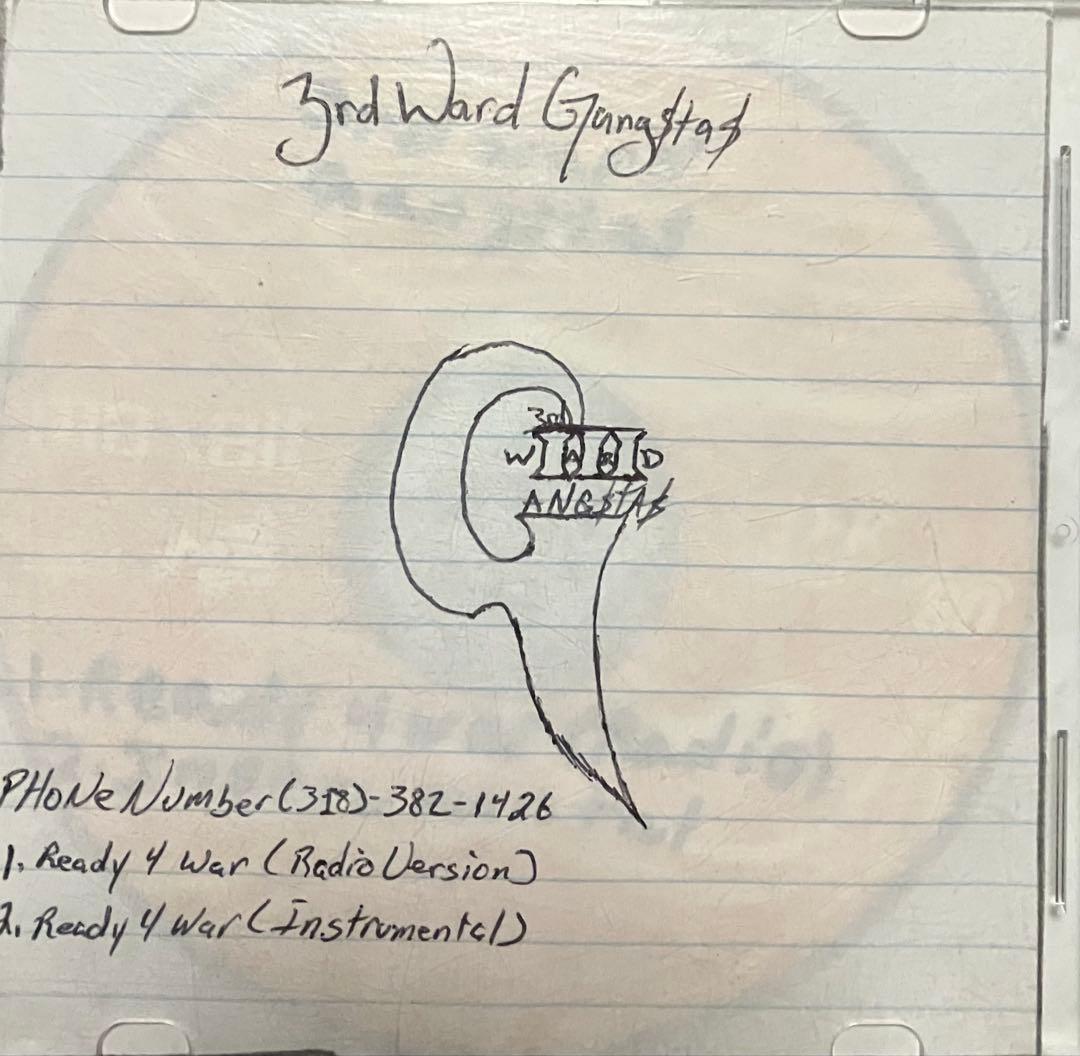 3rd Ward Gang$ta$
3rd
W A R D
ANG$TA$
PHONe Number (318)-382-1426
1. Ready 4 War (Radio Version)
2. Ready 4 War (Instrumental)